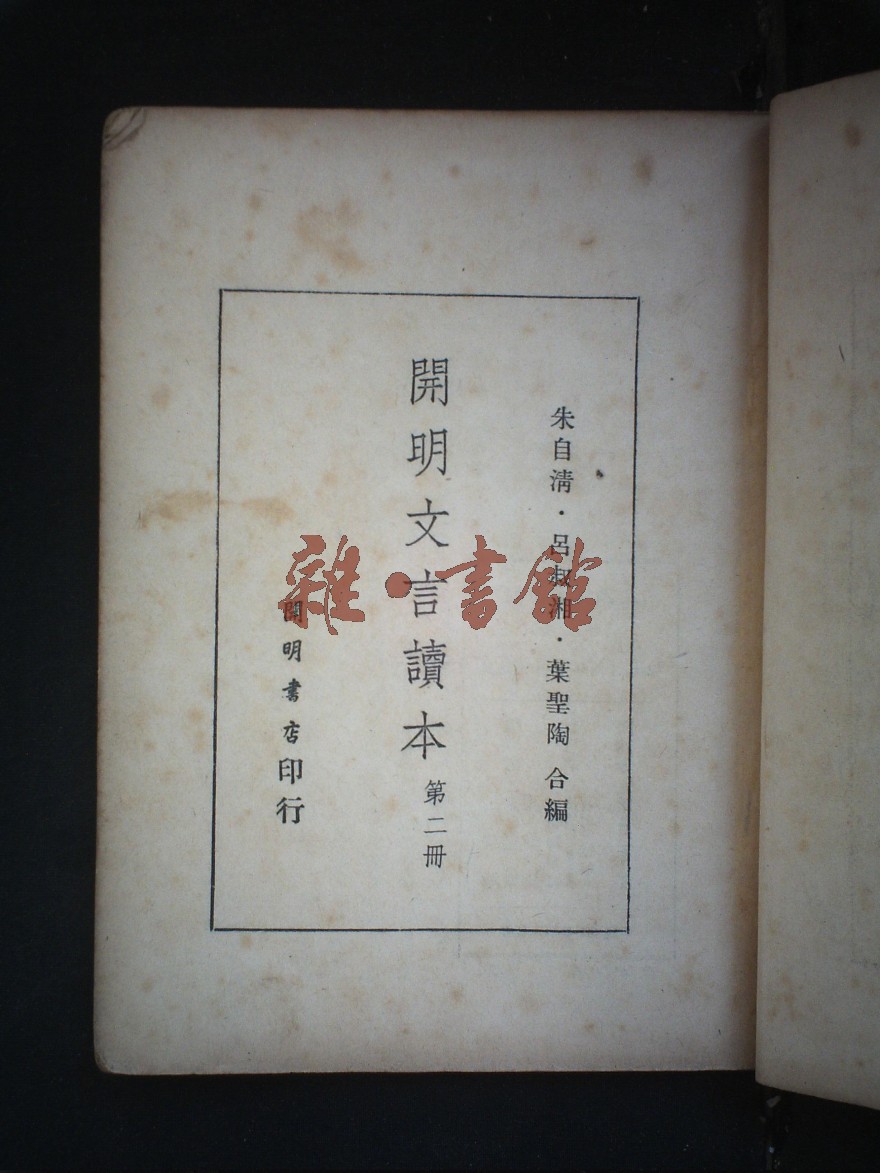 朱自清·呂叔湘·葉聖陶 合編
開明文言讀本 第二冊
開明書店印行
雜·書館